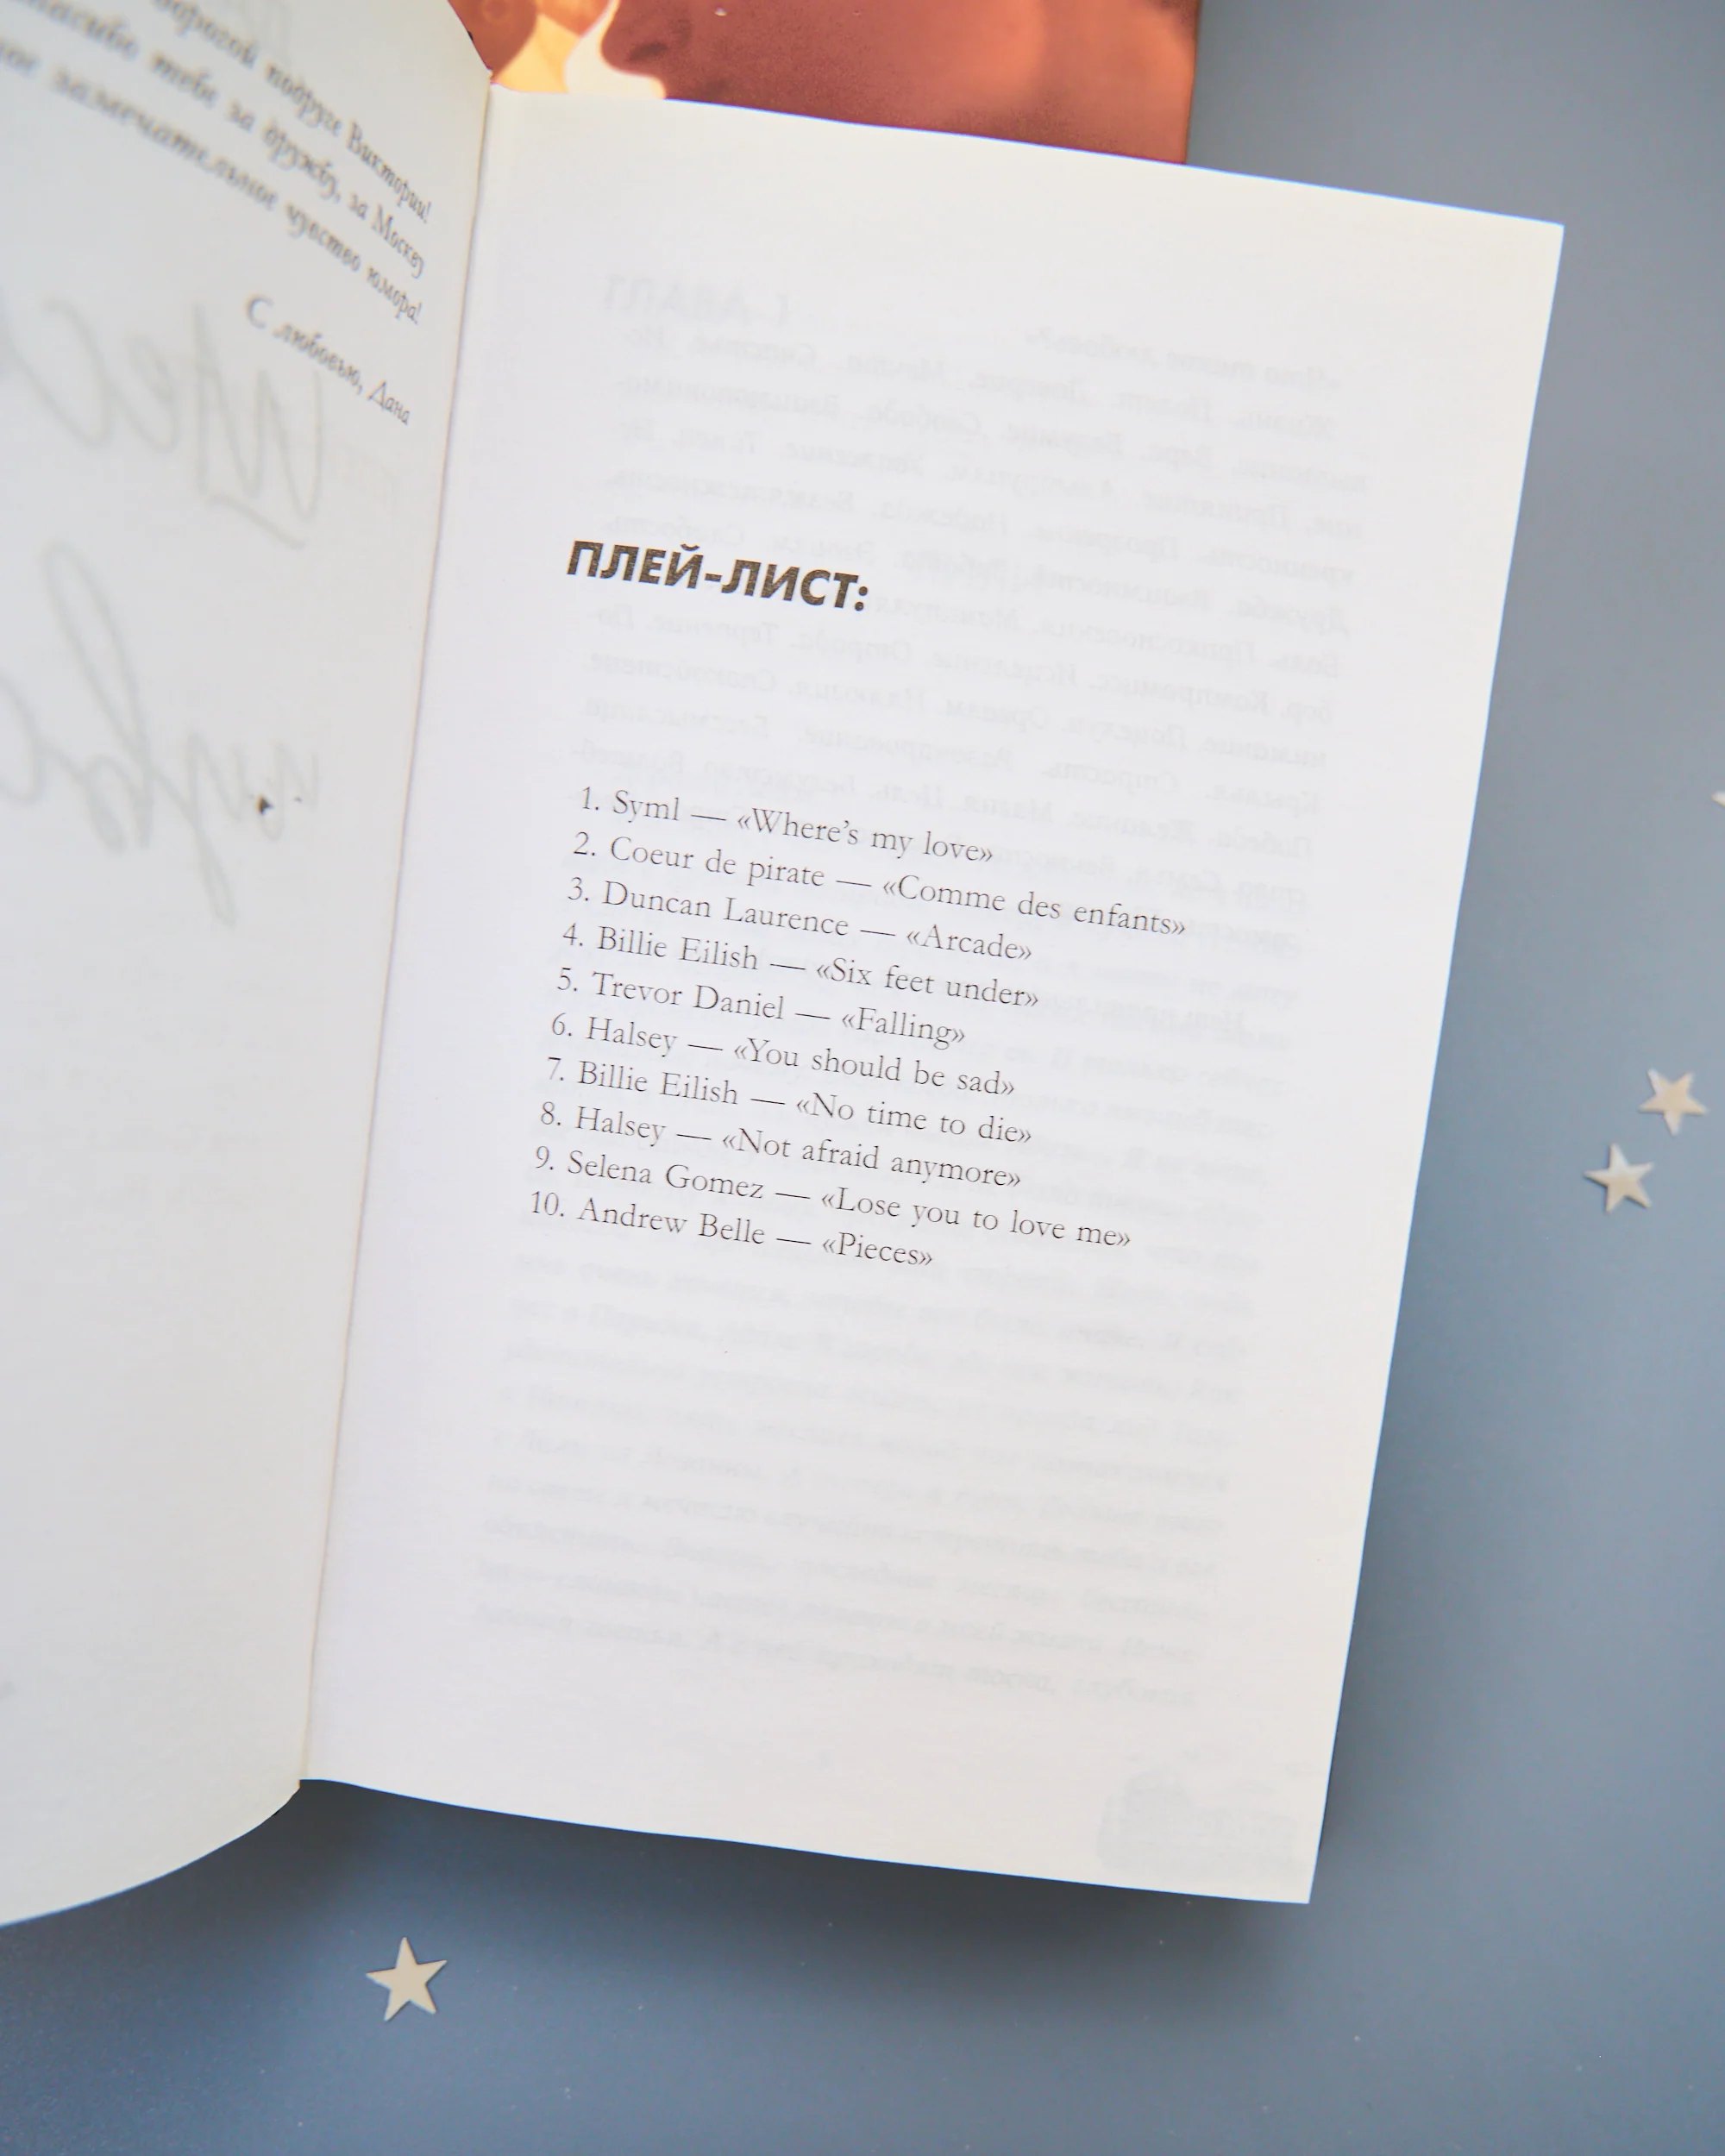 дорогой подруге Виктории!
спасибо тебе за дружбу, за Москву
замечательное чувство юмора!
С любовью, Дана
ПЛЕЙ-ЛИСТ:
1. Syml — «Where’s my love»
2. Coeur de pirate — «Comme des enfants»
3. Duncan Laurence — «Arcade»
4. Billie Eilish — «Six feet under»
5. Trevor Daniel — «Falling»
6. Halsey — «You should be sad»
7. Billie Eilish — «No time to die»
8. Halsey — «Not afraid anymore»
9. Selena Gomez — «Lose you to love me»
10. Andrew Belle — «Pieces»